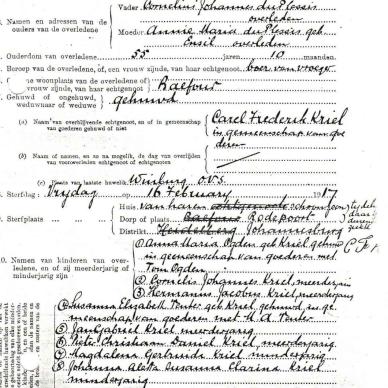 Vader Cornelius Johannes du Plessis
overleden
Namen en adressen van de ouders van de overledene
Moeder Annie Maria du Plessis geb
overleden
Ouderdom van overledene 55 jaren 10 maanden.
Beroep van de overledene, of, een vrouw zijnde, van haar echtgenoot
woonplaats van de overledene of, vrouw zijnde, van haar echtgenoot Balfour
Gehuwd of ongehuwd, weduwnaar of weduwe gehuwd
(a) Naam van overblijvende echtgenoot, en of in gemeenschap van goederen gehuwd of niet
Carel Frederik Kriel
in gemeenschap van goe
deren
(b) Naam of namen, en zo na mogelik, de dag van overlijden van vooroverleden echtgenoot of echtgenoten
(c) Plaats van laatste huwelik. Winburg O.V.S.
Sterfdag Vrydag 16 February 1917
Huis van haren echtgenoot schoonzoon
Sterfplaats Dorp of plaats Balfour Rodepoort
Distrikt Heidelberg Johannesburg
10. Namen van kinderen van overledene, en of zij meerderjarig of minderjarig zijn
Anna Maria Ogden geb Kriel gehuwd
in gemeenschap van goederen met
Tom Ogden
Cornelis Johannes Kriel, meerderjarig
Hermanus Jacobus Kriel, meerderjarig
Susanna Elizabeth Venter geb Kriel gehuwd in ge
meenschap van goederen met H A Venter
Jan Gabriel Kriel meerderjarig
Pieter Christiaan Daniel Kriel, meerjarig
Magdalena Gertruida Kriel minderjarig
Johanna Aletta Susanna Clarina Kriel
minderjarig